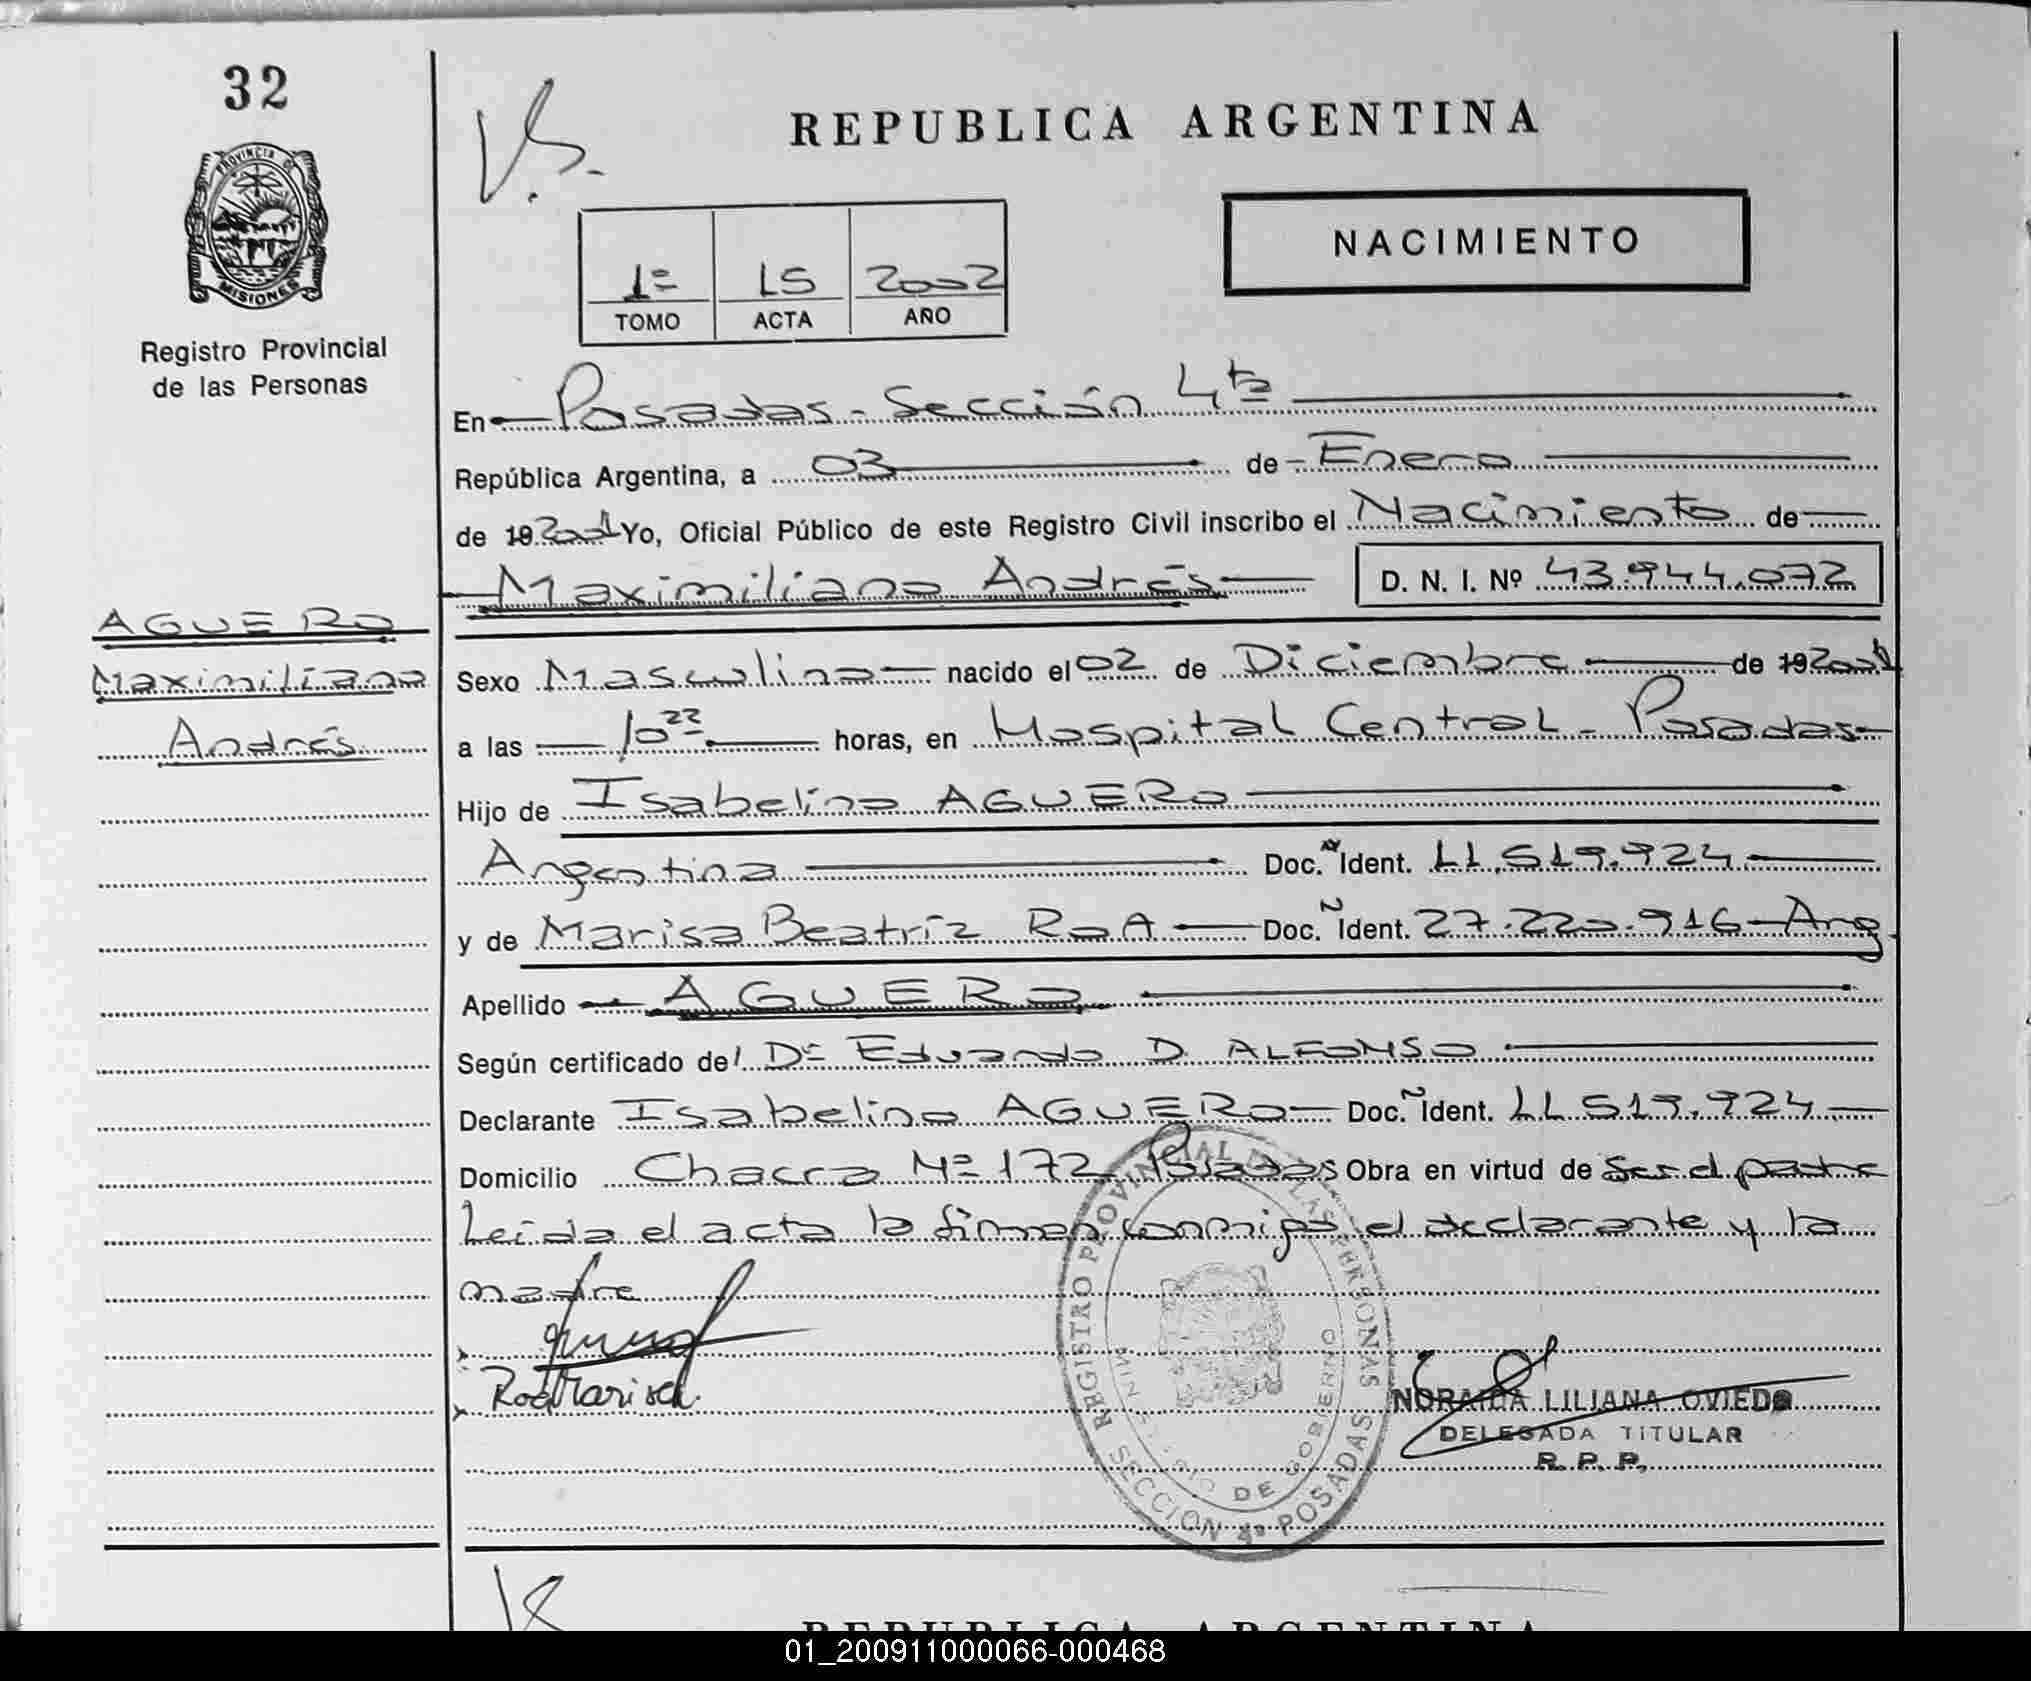 32
PROVINCIA DE
MISIONES
Registro Provincial
de las Personas
V.S.
REPUBLICA ARGENTINA
NACIMIENTO
1º 15 2002
TOMO ACTA AÑO
En Posadas - Sección 4ta
República Argentina, a 03 de Enero
de 19 Yo, Oficial Público de este Registro Civil inscribo el Nacimiento de
Maximiliano Andrés D. N. I. Nº 43.944.072
AGUERO
Maximiliano
Andrés
Sexo Masculino nacido el 02 de Diciembre de 19 2001
a las 10 22 horas, en Hospital Central - Posadas
Hijo de Isabelino AGUERO
Argentina Doc. Ident. 11.519.924
y de Marisa Beatríz RoA Doc. Ident. 27.220.916 - Arg.
Apellido AGUERO
Según certificado del Dr Eduardo D. ALFONSO
Declarante Isabelino AGUERO Doc. Ident. 11 519.924
Domicilio Chacra Nº 172 Posadas Obra en virtud de ser el padre
Leida el acta la firman conmigo el declarante y la
madre
Roa Marisa
REGISTRO PROVINCIAL DE LAS PERSONAS
MINISTERIO DE GOBIERNO
SECCION 4ª POSADAS
NORAIDA LILIANA OVIEDO
DELEGADA TITULAR
R. P. P.
REPUBLICA ARGENTINA
01_200911000066-000468